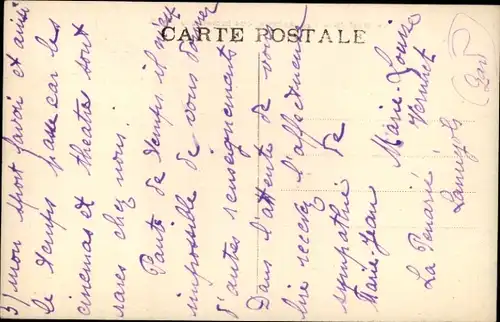 CARTE POSTALE
3) mon sport favori et ainsi
le temps passe car les
cinémas et théâtres sont
rares chez nous.
Faute de temps, il m'est
impossible de vous donner
d'autres renseignements
Dans l'attente de vous
lire recevez l'affectueuse
sympathie de
Marie-Jean
Marie-Louise
La